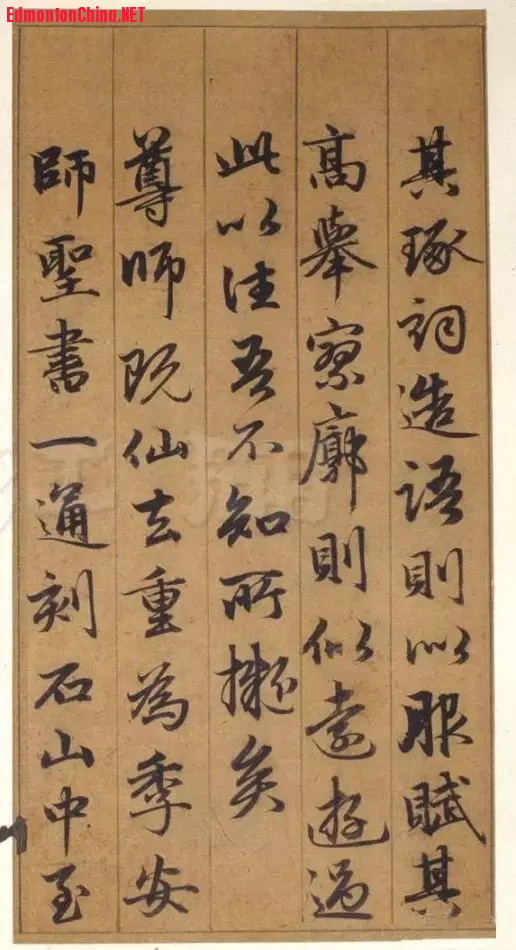 EdmontonChina.NET
其琢詞造語則似服賦其
高舉寥廓則似遠遊過
此以往吾不知所擬矣
尊師既仙去重為季安
師聖書一通刻石山中至